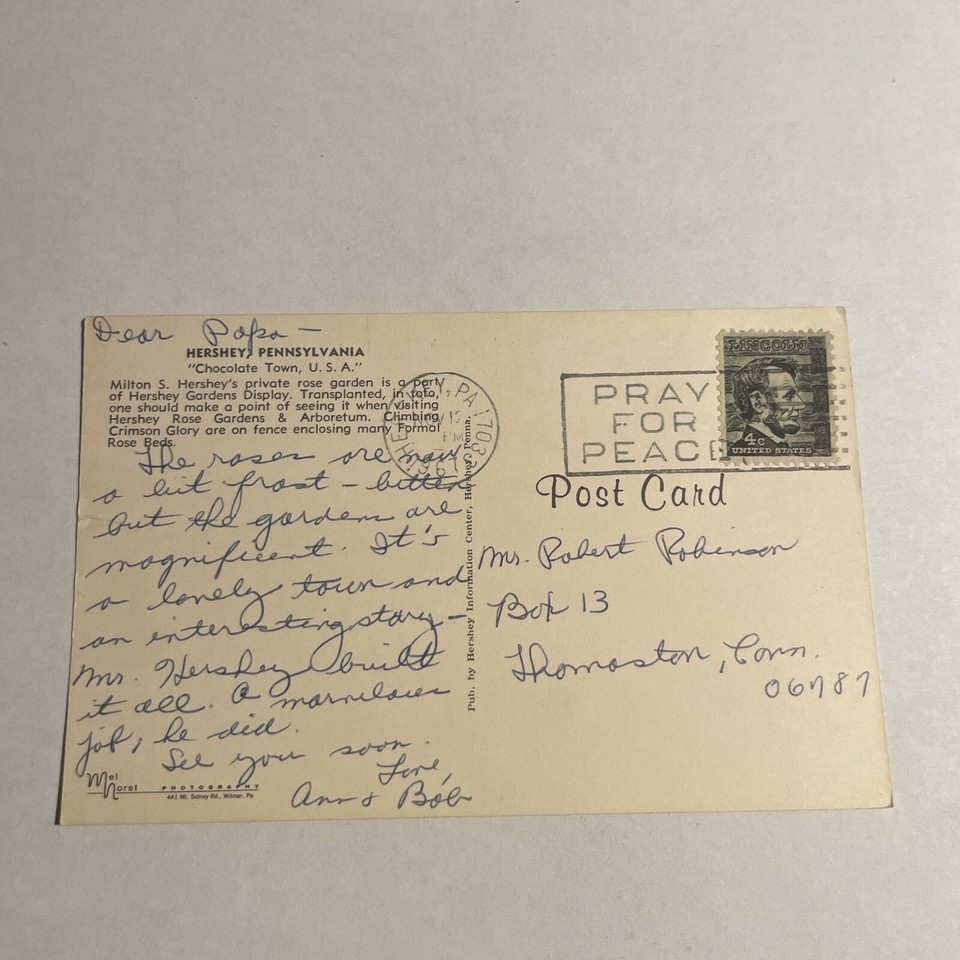 Dear Papa —
HERSHEY, PENNSYLVANIA
"Chocolate Town, U. S. A."
Milton S. Hershey's private rose garden is a part
of Hershey Gardens Display. Transplanted, in toto,
one should make a point of seeing it when visiting
Hershey Rose Gardens & Arboretum. Climbing
Crimson Glory are on fence enclosing many Formal
Rose Beds.
The roses are now
a bit frost - bitten
but the gardens are
magnificent. It's
a lovely town and
an interesting story -
Mr. Hershey built
it all. A marvelous
job, he did.
See you soon.
Love,
Ann & Bob
Mel Horst
PHOTOGRAPHY
441 Mt. Sidney Rd., Witmer, Pa
Pub. by Hershey Information Center, Hershey, Penna.
HERSHEY, PA 1703
12
PM
PRAY
FOR
PEACE
LINCOLN
4c
UNITED STATES
Post Card
Mr. Robert Robinson
Box 13
Thomaston, Conn.
06787